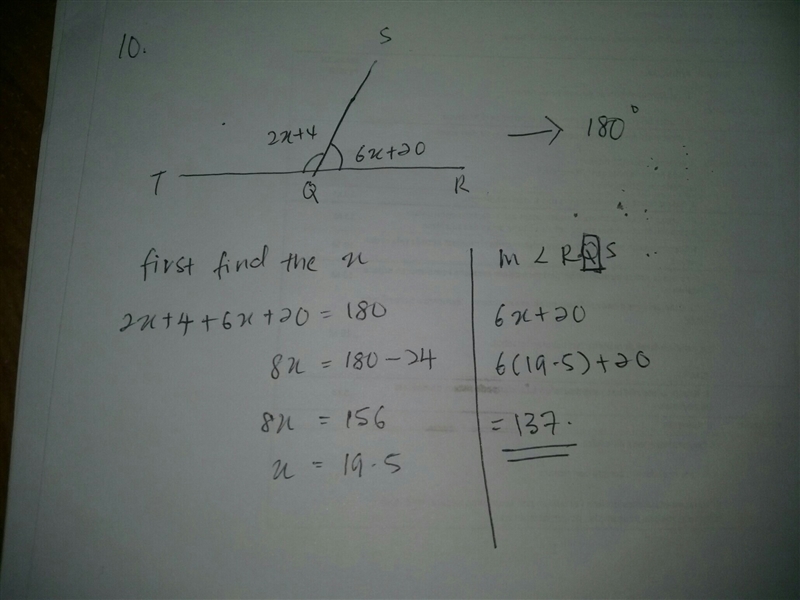 10.
S
2x+4
6x+20
→ 180°
T
Q
R
first find the x
2x+4+6x+20 = 180
8x = 180-24
8x = 156
x = 19.5
m < RQS
6x+20
6(19.5)+20
= 137.